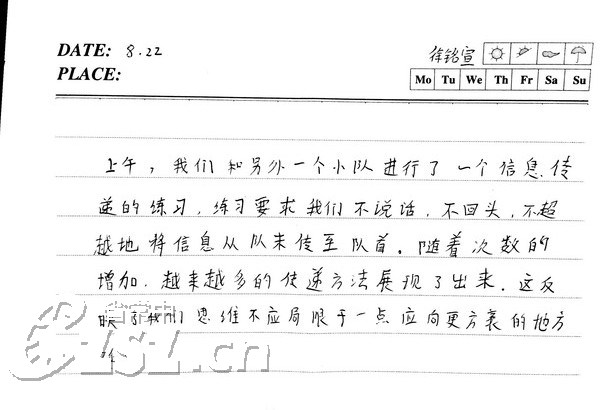 DATE: 8.22 徐铭宣
PLACE:
Mo Tu We Th Fr Sa Su
上午，我们和另外一个小队进行了一个信息传
递的练习，练习要求我们不说话，不回头，不超
越地将信息从队末传至队首。随着次数的
增加，越来越多的传递方法展现了出来。这反
映了我们思维不应局限于一点应向更方袤的地方
ZSL.cn